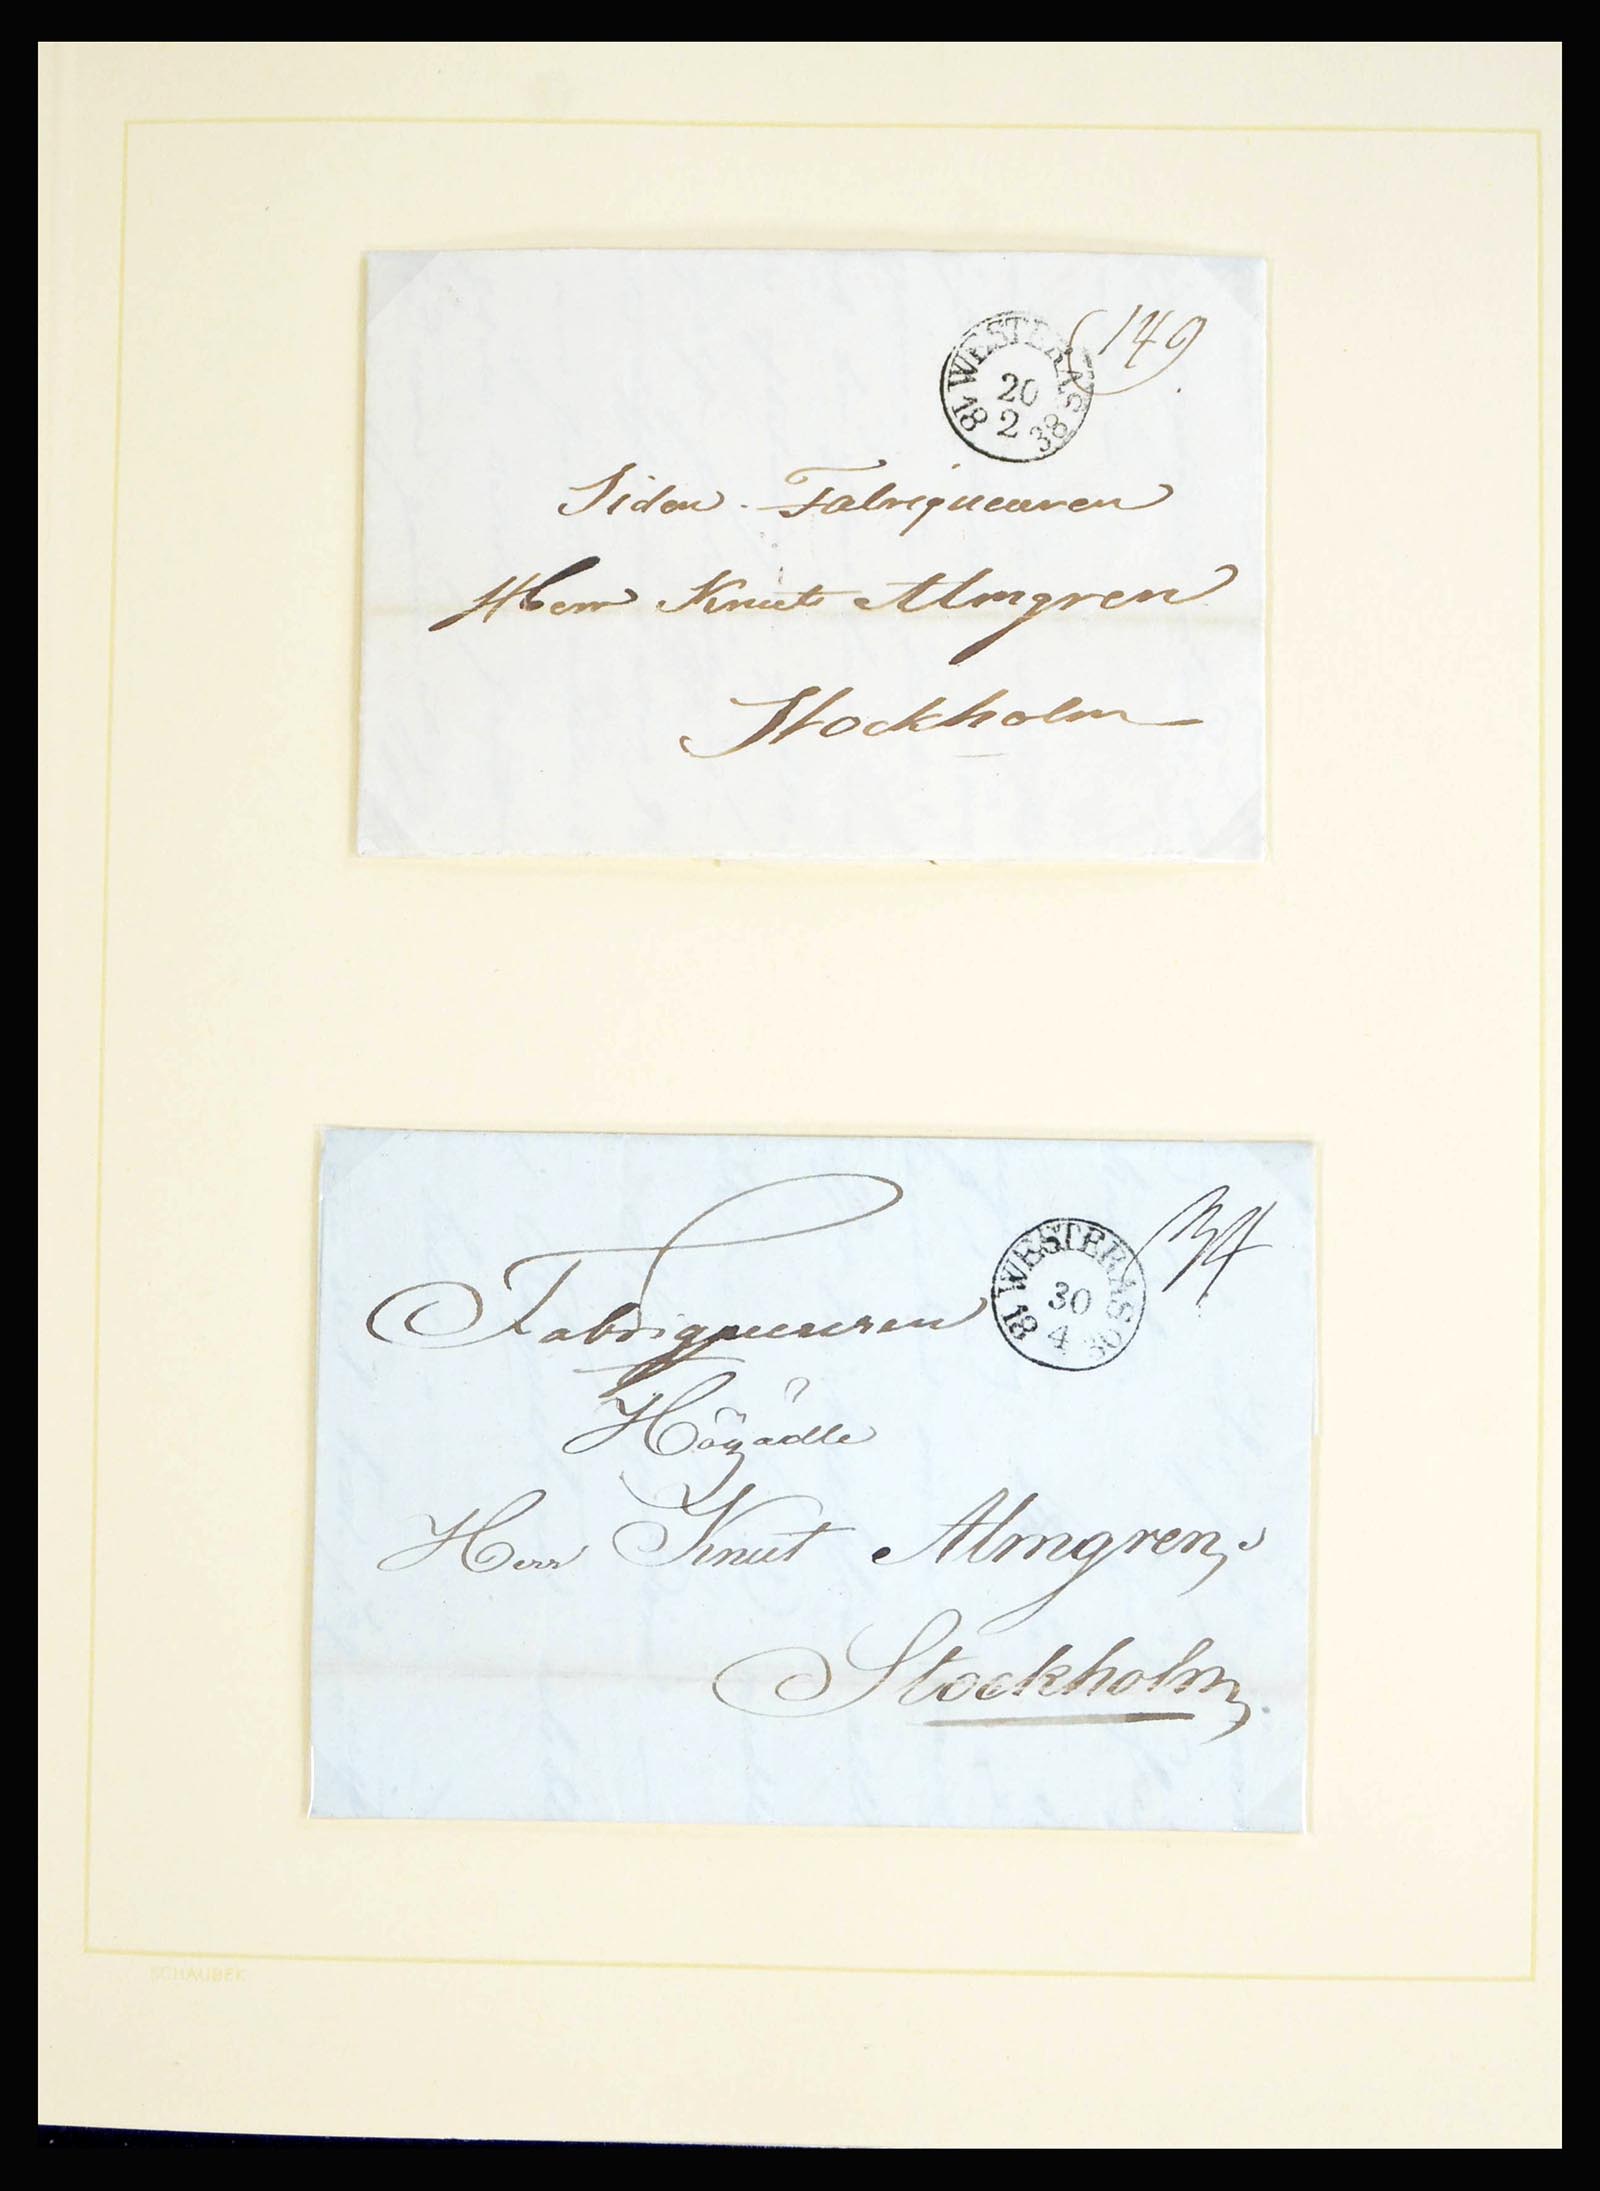 149
WESTERÅS
20
2
18 38
Siden-Fabriqueuren
Herr Knut Almgren
Stockholm
34
WESTERÅS
30
4
18
Fabriqueuren
Högädle
Herr Knut Almgren,
Stockholm,
SCHAUBEK